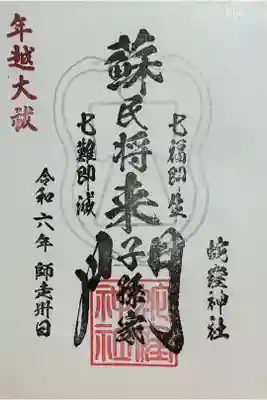 蛇窪神社
七福即生
蘇民将来子孫家門
七難即滅
年越大祓
令和六年 師走丗日
蛇窪神社